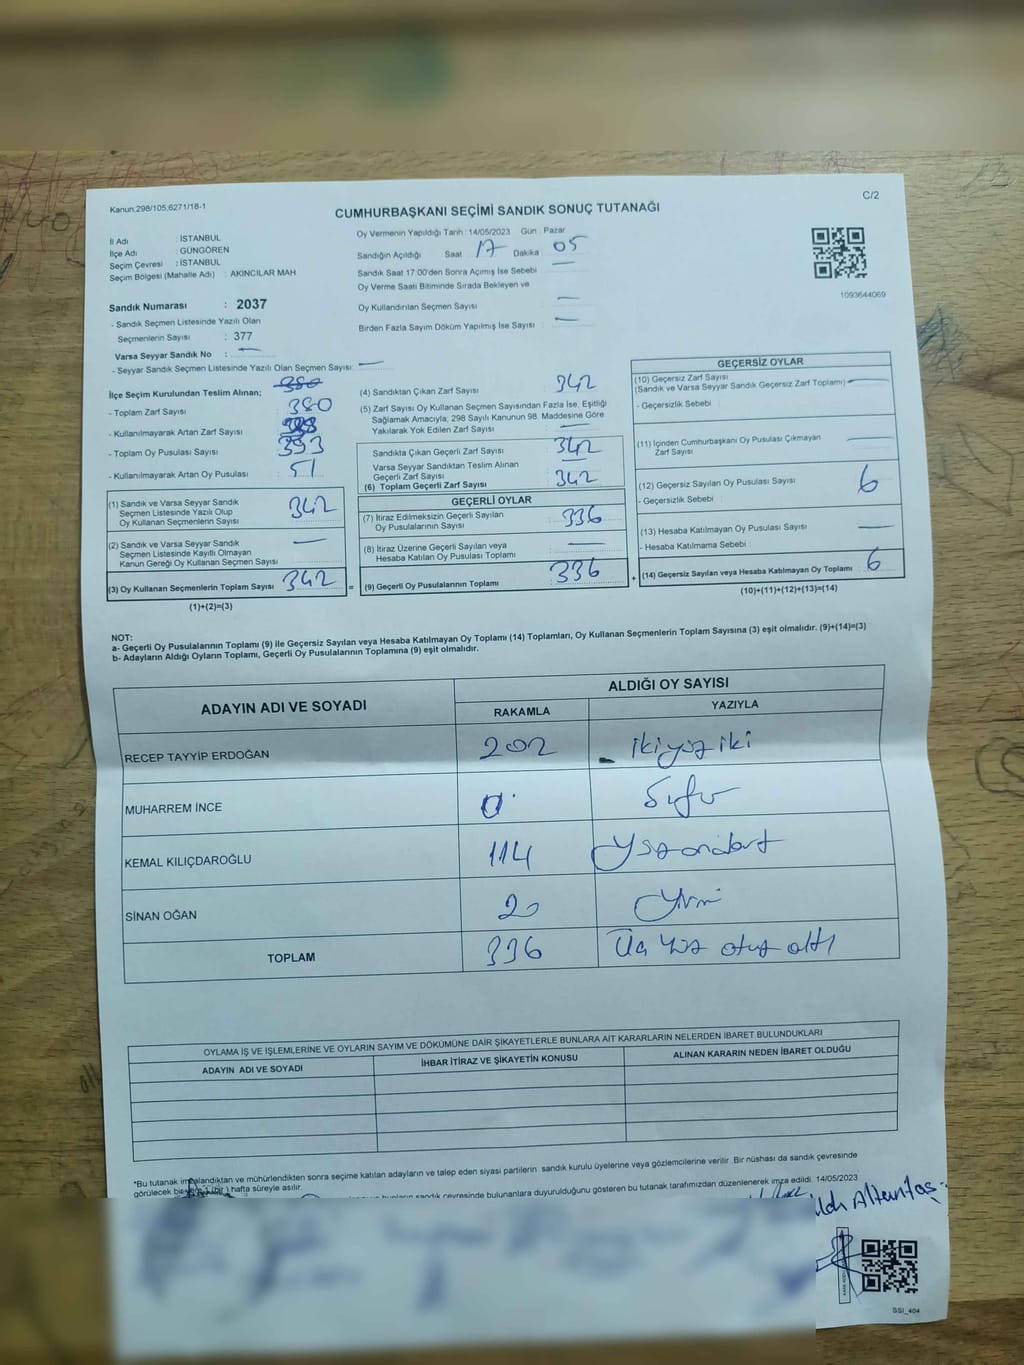 Kanun.298/105,6271/18-1
C/2
CUMHURBAŞKANI SEÇİMİ SANDIK SONUÇ TUTANAĞI
İl Adı : İSTANBUL
İlçe Adı : GÜNGÖREN
Seçim Çevresi : İSTANBUL
Seçim Bölgesi (Mahalle Adı) : AKINCILAR MAH
Sandık Numarası : 2037
- Sandık Seçmen Listesinde Yazılı Olan
Seçmenlerin Sayısı : 377
Varsa Seyyar Sandık No : —
- Seyyar Sandık Seçmen Listesinde Yazılı Olan Seçmen Sayısı: —
Oy Vermenin Yapıldığı Tarih : 14/05/2023 Gün : Pazar
Sandığın Açıldığı Saat 17 Dakika 05
Sandık Saat 17:00'den Sonra Açımış İse Sebebi —
Oy Verme Saati Bitiminde Sırada Bekleyen ve
Oy Kullandırılan Seçmen Sayısı —
Birden Fazla Sayım Döküm Yapılmış İse Sayısı : —
1093644069
İlçe Seçim Kurulundan Teslim Alınan; 380
- Toplam Zarf Sayısı 380
- Kullanılmayarak Artan Zarf Sayısı
- Toplam Oy Pusulası Sayısı 393
- Kullanılmayarak Artan Oy Pusulası 51
(1) Sandık ve Varsa Seyyar Sandık
Seçmen Listesinde Yazılı Olup
Oy Kullanan Seçmenlerin Sayısı 342
(2) Sandık ve Varsa Seyyar Sandık
Seçmen Listesinde Kayıtlı Olmayan
Kanun Gereği Oy Kullanan Seçmen Sayısı —
(3) Oy Kullanan Seçmenlerin Toplam Sayısı 342 =
(1)+(2)=(3)
(4) Sandıktan Çıkan Zarf Sayısı 342
(5) Zarf Sayısı Oy Kullanan Seçmen Sayısından Fazla İse, Eşitliği
Sağlamak Amacıyla; 298 Sayılı Kanunun 98. Maddesine Göre
Yakılarak Yok Edilen Zarf Sayısı —
Sandıkta Çıkan Geçerli Zarf Sayısı 342
Varsa Seyyar Sandıktan Teslim Alınan
Geçerli Zarf Sayısı —
(6) Toplam Geçerli Zarf Sayısı 342
GEÇERLİ OYLAR
(7) İtiraz Edilmeksizin Geçerli Sayılan
Oy Pusulalarının Sayısı 336
(8) İtiraz Üzerine Geçerli Sayılan veya
Hesaba Katılan Oy Pusulası Toplamı —
(9) Geçerli Oy Pusulalarının Toplamı 336 +
GEÇERSİZ OYLAR
(10) Geçersiz Zarf Sayısı
(Sandık ve Varsa Seyyar Sandık Geçersiz Zarf Toplamı) —
- Geçersizlik Sebebi :
(11) İçinden Cumhurbaşkanı Oy Pusulası Çıkmayan
Zarf Sayısı —
(12) Geçersiz Sayılan Oy Pusulası Sayısı 6
- Geçersizlik Sebebi :
(13) Hesaba Katılmayan Oy Pusulası Sayısı —
- Hesaba Katılmama Sebebi :
(14) Geçersiz Sayılan veya Hesaba Katılmayan Oy Toplamı : 6
(10)+(11)+(12)+(13)=(14)
NOT:
a- Geçerli Oy Pusulalarının Toplamı (9) ile Geçersiz Sayılan veya Hesaba Katılmayan Oy Toplamı (14) Toplamları, Oy Kullanan Seçmenlerin Toplam Sayısına (3) eşit olmalıdır. (9)+(14)=(3)
b- Adayların Aldığı Oyların Toplamı, Geçerli Oy Pusulalarının Toplamına (9) eşit olmalıdır.
ADAYIN ADI VE SOYADI
ALDIĞI OY SAYISI
RAKAMLA YAZIYLA
RECEP TAYYİP ERDOĞAN 202 ikiyüz iki
MUHARREM İNCE 0 Sıfır
KEMAL KILIÇDAROĞLU 114 Yüzondört
SİNAN OĞAN 20 Yirmi
TOPLAM 336 Üç Yüz otuz altı
OYLAMA İŞ VE İŞLEMLERİNE VE OYLARIN SAYIM VE DÖKÜMÜNE DAİR ŞİKAYETLERLE BUNLARA AİT KARARLARIN NELERDEN İBARET BULUNDUKLARI
ADAYIN ADI VE SOYADI İHBAR İTİRAZ VE ŞİKAYETİN KONUSU ALINAN KARARIN NEDEN İBARET OLDUĞU
*Bu tutanak imzalandıktan ve mühürlendikten sonra seçime katılan adayların ve talep eden siyasi partilerin sandık kurulu üyelerine veya gözlemcilerine verilir. Bir nüshası da sandık çevresinde
görülecek bir yere 1 (bir) hafta süreyle asılır.
sandık çevresinde bulunanlara duyurulduğunu gösteren bu tutanak tarafımızdan düzenlenerek imza edildi. 14/05/2023
Altuntaş
SSI_404